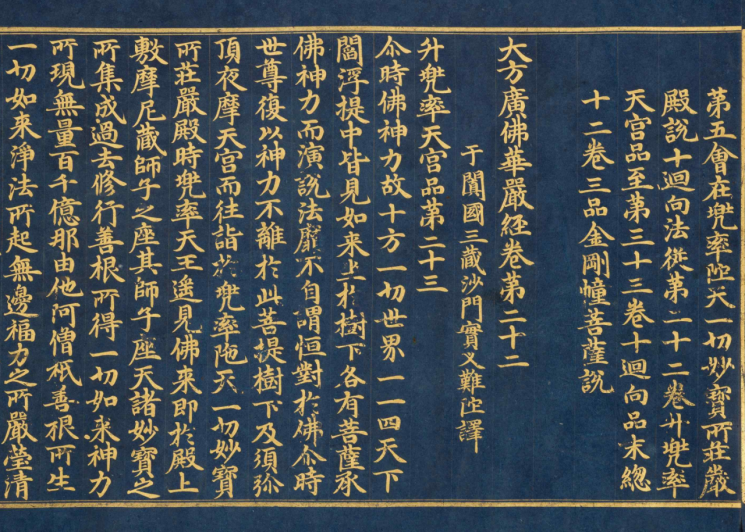 第五會在兜率陁天一切妙寶所莊嚴
殿說十迴向法從第二十二卷升兜率
天宮品至第三十三卷十迴向品末緫
十二卷三品金剛幢菩薩說
大方廣佛華嚴経卷第二十二
于闐國三藏沙門實叉難陁譯
升兜率天宮品第二十三
尒時佛神力故十方一切世界一一四天下
閻浮提中皆見如来坐於樹下各有菩薩承
佛神力而演說法靡不自謂恒對於佛尒時
世尊復以神力不離於此菩提樹下及須弥
頂夜摩天宮而往詣於兜率陁天一切妙寶
所莊嚴殿時兜率天王遙見佛来即於殿上
敷摩尼藏師子之座其師子座天諸妙寶之
所集成過去修行善根所得一切如来神力
所現無量百千億那由他阿僧祇善根所生
一切如来淨法所起無邊福力之所嚴瑩清